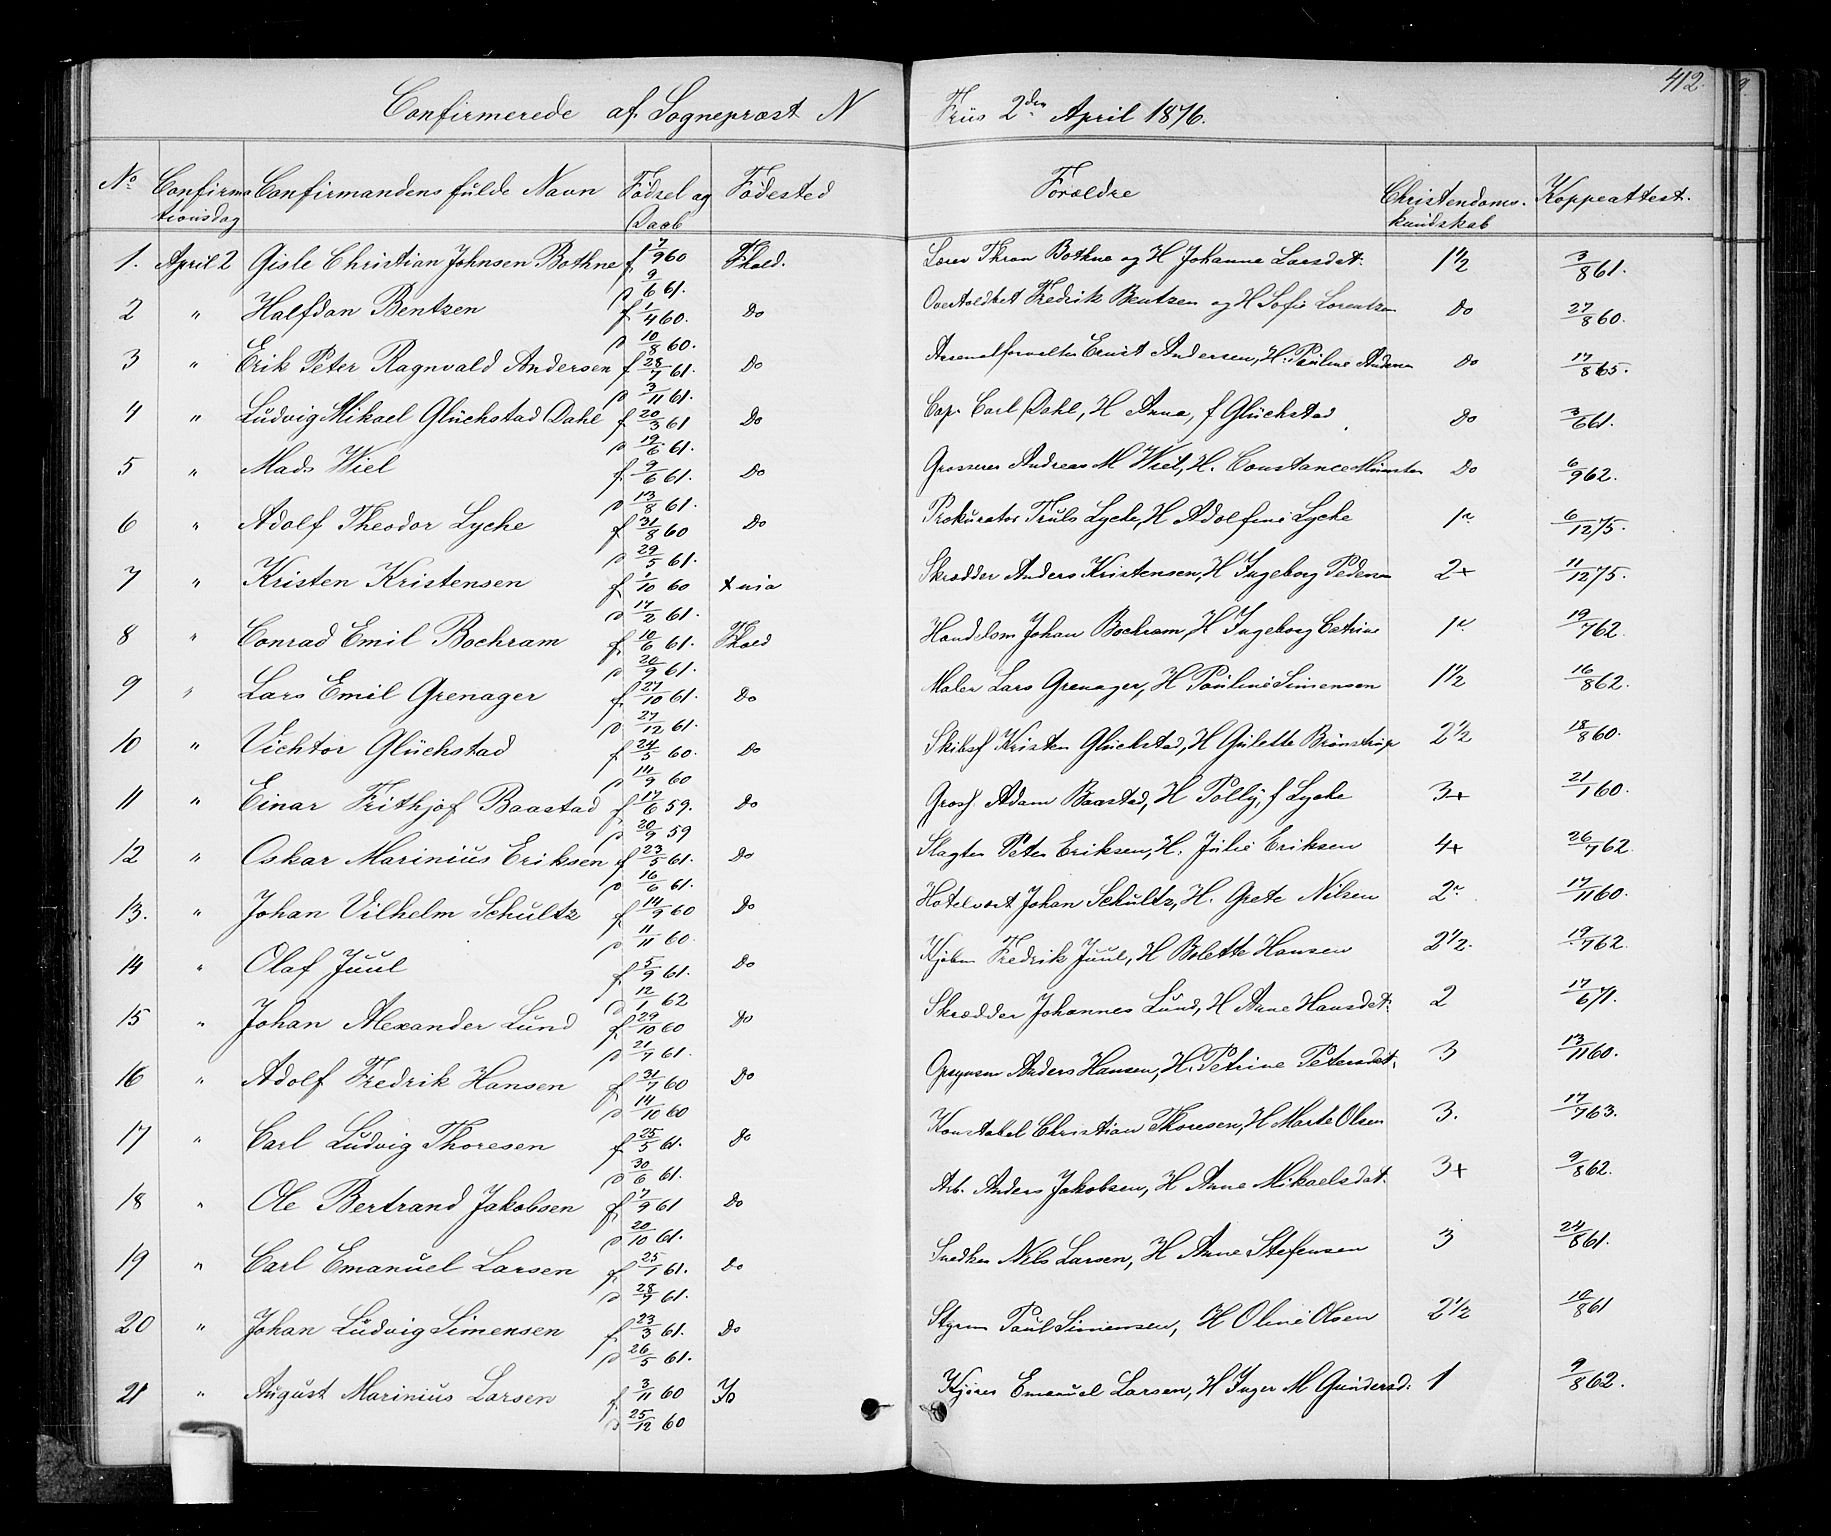 412.
Confirmerede af Sogneprest N Friis 2den April 1876.
No Confirmationsdag Confirmandens fulde Navn Fødsel og Daab Fødested Forældre Christendomskundskab Koppeattest.
1. April 2 Gisle Christian Johnsen Bothne f 7/9 60 Fhald. Lærer Thron Bothne og H Johanne Larsdat. 1½ 3/8 61.
d 9/6 61.
2 " Halfdan Bentzen f 1/4 60. Do Overtoldbet Fredrik Bentzen og H Sofie Lorentzen Do 27/8 60.
d 10/8 60.
3 " Erik Peter Ragnvald Andersen f 28/7 61. Do Arsenalforvalter Ernst Andersen, H. Pauline Andersen Do 17/8 65.
d 3/11 61.
4 " Ludvig Mikael Glückstad Dahl f 20/3 61 Do Cap. Carl Dahl, H Anna, f Glückstad Do 3/6 61.
d 19/6 61.
5 " Mads Wiel f. 9/6 61. Do Grosserer Andreas M Wiel, H. Constance Münster Do 6/9 62.
d 13/8 61.
6 " Adolf Theodor Lyche f 31/8 60 Do Prokurator Truls Lyche, H Adolfine Lyche 6/12 75.
d 29/5 61.
7 " Kristen Kristensen f 1/10 60 Xnia Skrædder Anders Kristensen, H Ingeborg Pedersen 2+ 11/12 75.
d 17/2 61.
8 " Conrad Emil Bochram f 10/6 61. Fhald Handelsm Johan Bochram, H Ingeborg Catrine 19/7 62.
d 20/9 61.
9 " Lars Emil Grenager f 27/10 61. Do Maler Lars Grenager, H Pauline Simensen 1½ 16/8 62.
d 27/12 61.
10 " Vichtor Glückstad f 24/5 60. Do Skibsf Kristen Glückstad, H Gulette Brønstrup 2½ 18/8 60.
d 14/9 60
11 " Einar Frithjof Baastad f 17/6 59. Do Gross Adam Baastad, H Polly, f Lyche 3+ 21/1 60.
d 20/9 59
12 " Oskar Marinius Eriksen f 23/5 61. Do Slagter Peter Eriksen, H. Julie Eriksen 4+ 26/7 62.
d 16/6 61.
13. " Johan Vilhelm Schultz f 14/9 60 Do Hotelvært Johan Schultz, H. Grete Nilsen 17/11 60.
d 11/11 60.
14 " Olaf Juul f 5/9 61. Do Kjøbm Fredrik Juul, H Bolette Hansen 2½. 19/7 62.
d 12/1 62
15 " Johan Alexander Lund f. 29/10 60 Do Skrædder Johannes Lund, H Anne Hansdat. 2 17/6 71.
d 21/7 61.
16 " Adolf Fredrik Hansen f 31/7 60 Do Opsynsm Anders Hansen, H. Petrine Petersdat. 3 13/11 60.
d 14/10 60
17 " Carl Ludvig Thoresen f 25/5 61. Do Konstabel Christian Thoresen, H Marte Olsen 3. 17/7 63.
d 30/6 61.
18 " Ole Bertrand Jakobsen f 7/9 61 Do Arb. Anders Jakobsen, H Anne Mikaelsdat. 3+ 9/8 62.
d 20/10 61.
19 " Carl Emanuel Larsen f 25/1 61. Do Snedker Nils Larsen, H Anne Stefensen 3 24/8 61.
d 28/7 61.
20 " Johan Ludvig Simensen f 23/3 61. Do Styrm Paul Simensen, H Oline Olsen 2½ 10/8 61
d 26/5 61.
21 " August Marinius Larsen f. 3/11 60 Do Kjører Emanuel Larsen, H Inger M Gundersd. 1 9/8 62.
d 25/12 60